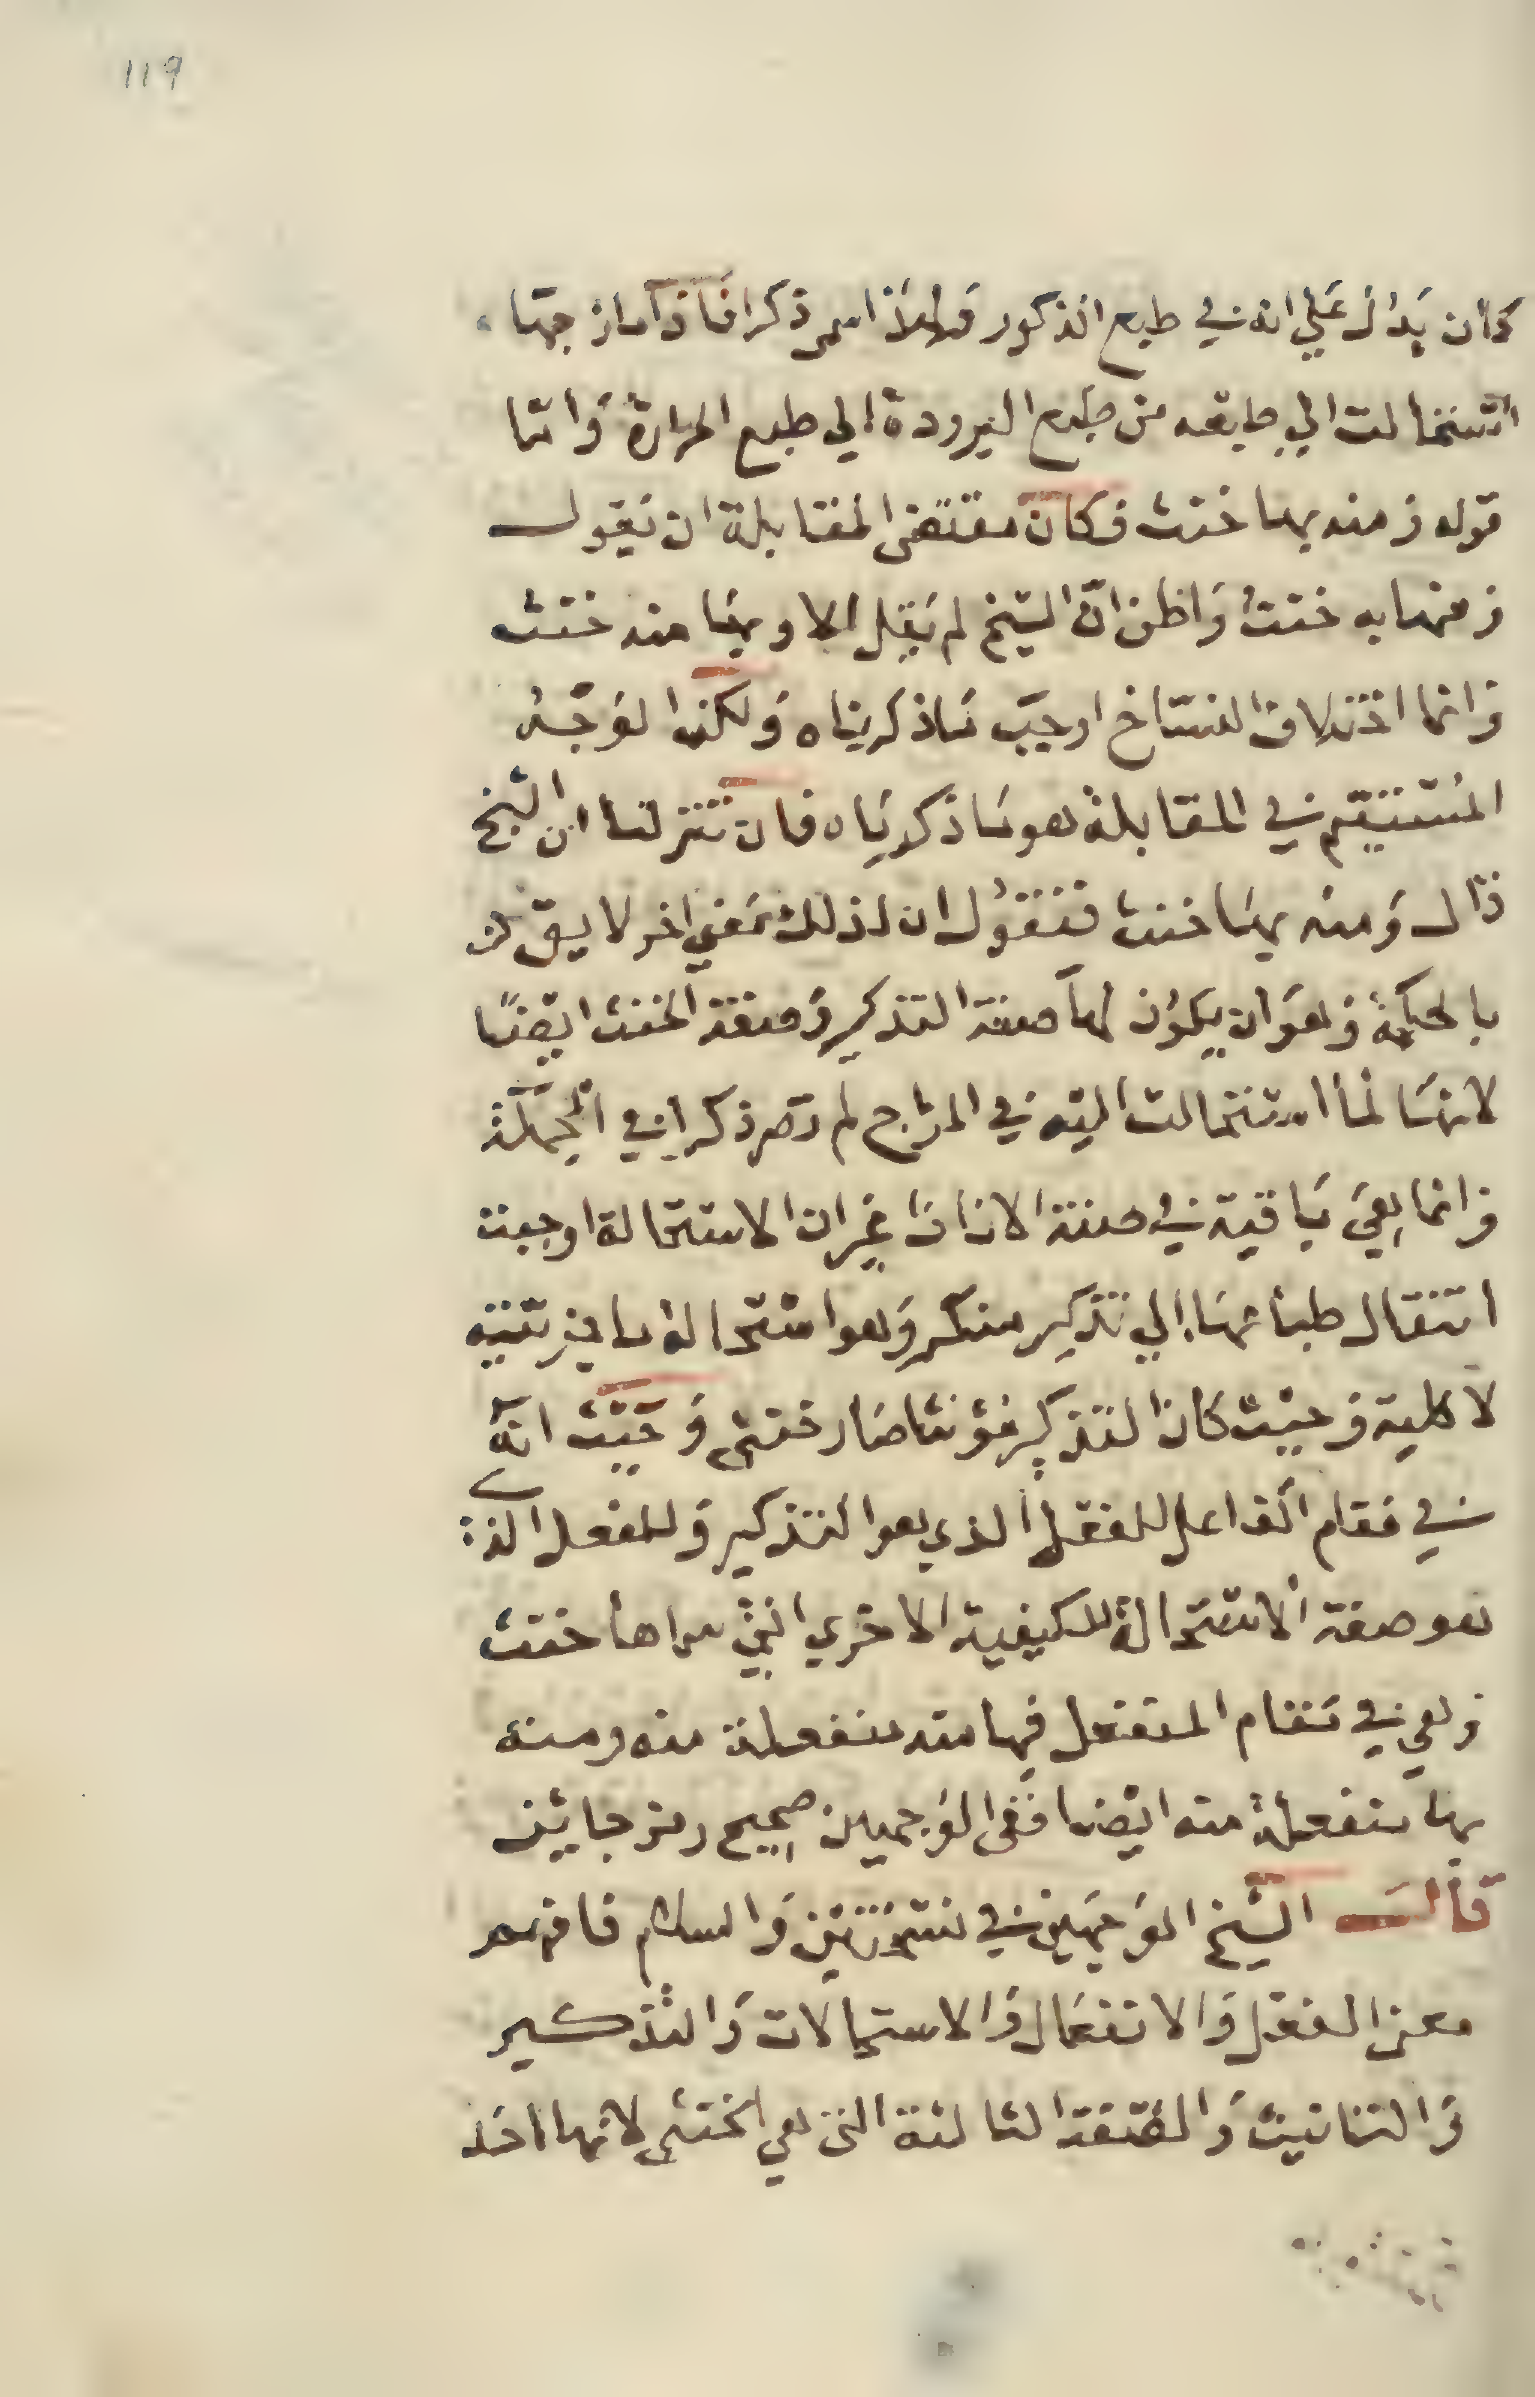 119
كان يدل على انه في طبع الذكور فلهذا سمى ذكرا فاذا مازجها
استحالت الي طابعه من طبع البرودة الي طبع الحرارة وَاما
قوله ومنه بها خنث فكان مقتضى المقابلة ان يَقول
ومنها به خنث وَاظن انّ الشيخ لم يَقل الا وبها منه خنث
وَانما اختلاف النسّاخ اوجبَ مَا ذكرناه وَلكن الوَجه
المُستقيم في المقابلة هو مَا ذكرناه فان تنزلنا ان الشيخ
قال وَمنه بها خنث فنقول ان لذلك مَعني اخر لايق
بالحكمة وَهوَ ان يكون لها صفة التذكير وَصفة الخنث ايضًا
لانها لما استحالت اليه في المزاج لم تصر ذكرا في الجملة
وَانما هي بَاقية في صفة الاناث غير ان الاستحالة اوجبت
انتقال طباعها الي تذكير منكر وَهو استحالة مَا
لا كلية وَحيث كان التذكير مؤنثا صَار خنثى وَحيث انه
في مَقام الفاعل للفعل الذي هو التذكير وَللفعل الذي
هو صفة الاستحالة للكيفية الاخري التي سماها خنث
وَهي في مَقام المنفعل فيها منه منفعلة منه ومنه
بها منفعلة منه ايضا ففي الوَجهين صحيح رمز جائز
قال الشيخ الوَجهين في نسختين وَالسلام فافهم
معنى الفعل وَالانفعَال وَالاستحالات وَالتذكير
وَالتانيث وَالصفة الثالثة التي هي الخنثى لانها احَد